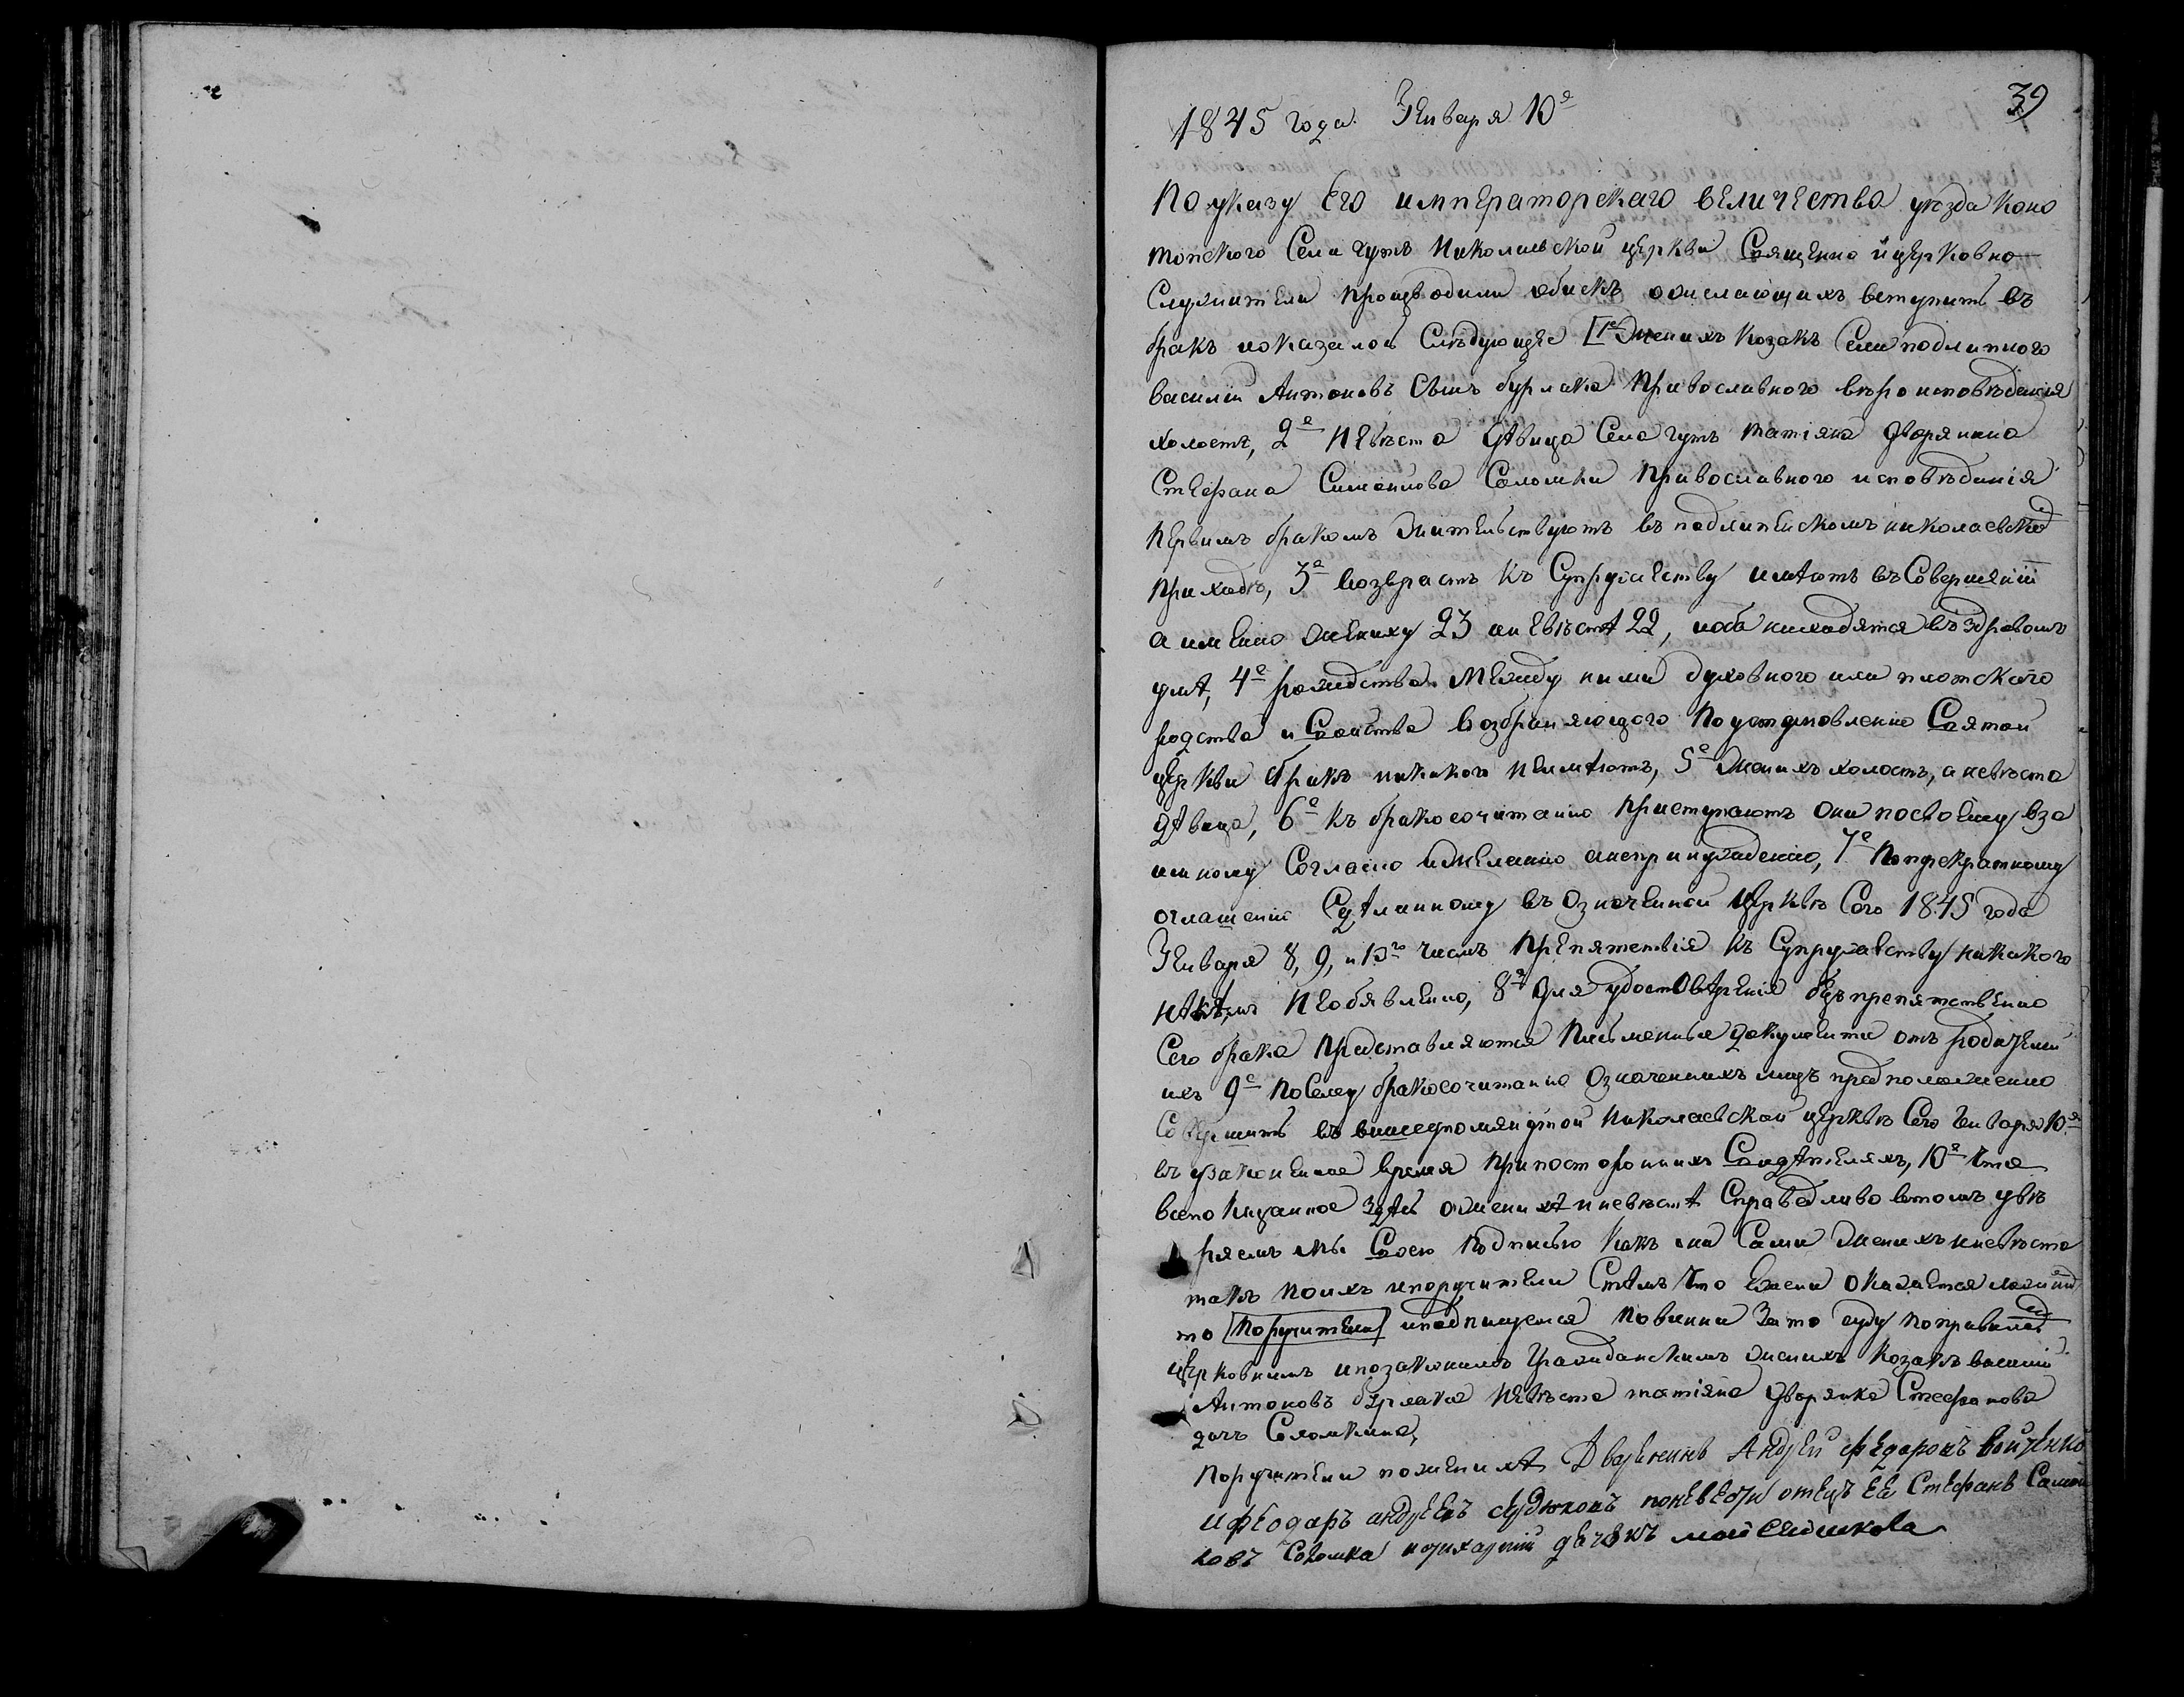 39
1845 года Генваря 10е
По указу Его императорскаго величества уезда Коно
топского Села Гутъ Николаевской церкви Священно ицерковно
Служители производили обискъ ожелающихъ вступить въ
бракъ ноказалось Слѣдующе 1е Женихъ Козакъ Села подлипного
василій Антоновъ Сынъ бурлака Православного вѣроисповѣдания
холостъ, 2е Невѣста дѣвица Села Гутъ татіяна дворянина
Стефана Соломки Православного исповѣданія
первимъ бракомъ Жительствуютъ въ подлипенскомъ николаевско
приходѣ, 3е возврастъ къ Супружеству имѣютъ въ Совершеніи
а именно Жениху 23 аневѣстѣ 22, иоба находятся въ здравомъ
умѣ, 4е рождства Между ними духовного или плотскаго
родства и Свойства возбраняющого По установлению Святой
церкви бракъ никакого неимѣютъ, 5е Женихъ холостъ, а невѣста
дѣвица, 6е къ бракосочитанию Приступаютъ Они посвоему вза
имному Согласию иЖеланию анепринуждению, 7е Потрекратному
оглашению Сдѣланному въ Означенной Церквѣ Сего 1845 года
Генваря 8, 9, и 10го числъ Препятствія къ Супружеству никакого
нѣкѣмъ Необявленно, 8е Для удостовѣрения безпрепятственно
Сего брака Представляются Писменные документи отъ родителей
ихъ 9е По Сему бракосочитание Означеннихъ лицъ предположенно
Совершить въ вишеупомянутой Николаевской церквѣ Сего Генваря 10е
въ узаконенное время При постороннихъ Свидѣтеляхъ, 10е Что
все показанное здѣсь оженихѣ иневѣстѣ Справедливо втомъ увѣ
ряемъ Своею Подписью Какъ они Сами Женихъ иневѣста
такъ поихъ ипоручители Стѣмъ Что Ежели окажется
то Поручители иподпишемся Повинни За то суду поправиламъ
церковнимъ ипозаконамъ Гражданскимъ женихъ Козакъ василій
Антоновъ бурлака Невѣста татіяна дворянка Стефанова
дочь Соломкина,
Поручители поженихѣ Дворенинъ Андрей федаровъ войтенко
ифеодаръ андреевъ сердюковъ поневесте отецъ Ее Стефанъ Самой
ловъ Соломка